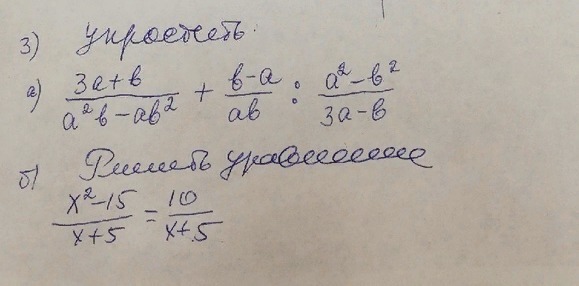 3) упростить.
а) \frac{3a+b}{a^2b-ab^2} + \frac{b-a}{ab} : \frac{a^2-b^2}{3a-b}
б) Решить уравнение
\frac{x^2-15}{x+5} = \frac{10}{x+5}